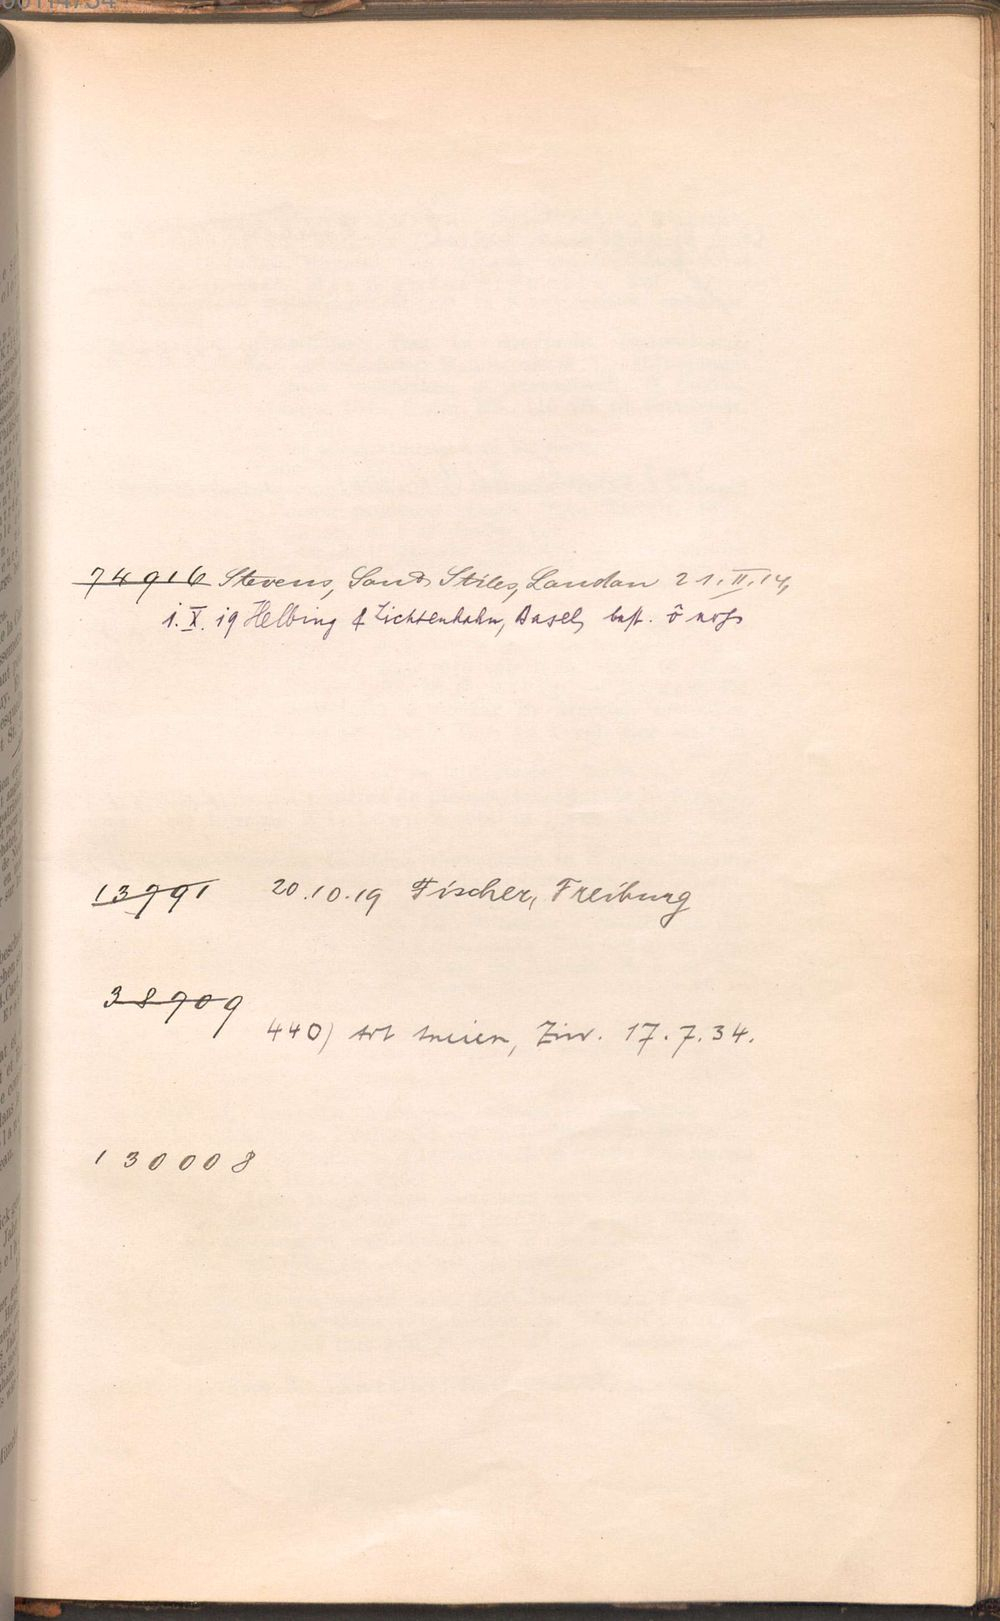 74916 Stevens, Son & Stiles, London 21.II.14,
1. X. 19 Helbing & Lichtenhahn, Basel, best.
13791 20.10.19 Fischer, Freiburg
38709
440) 17.7.34.
130008